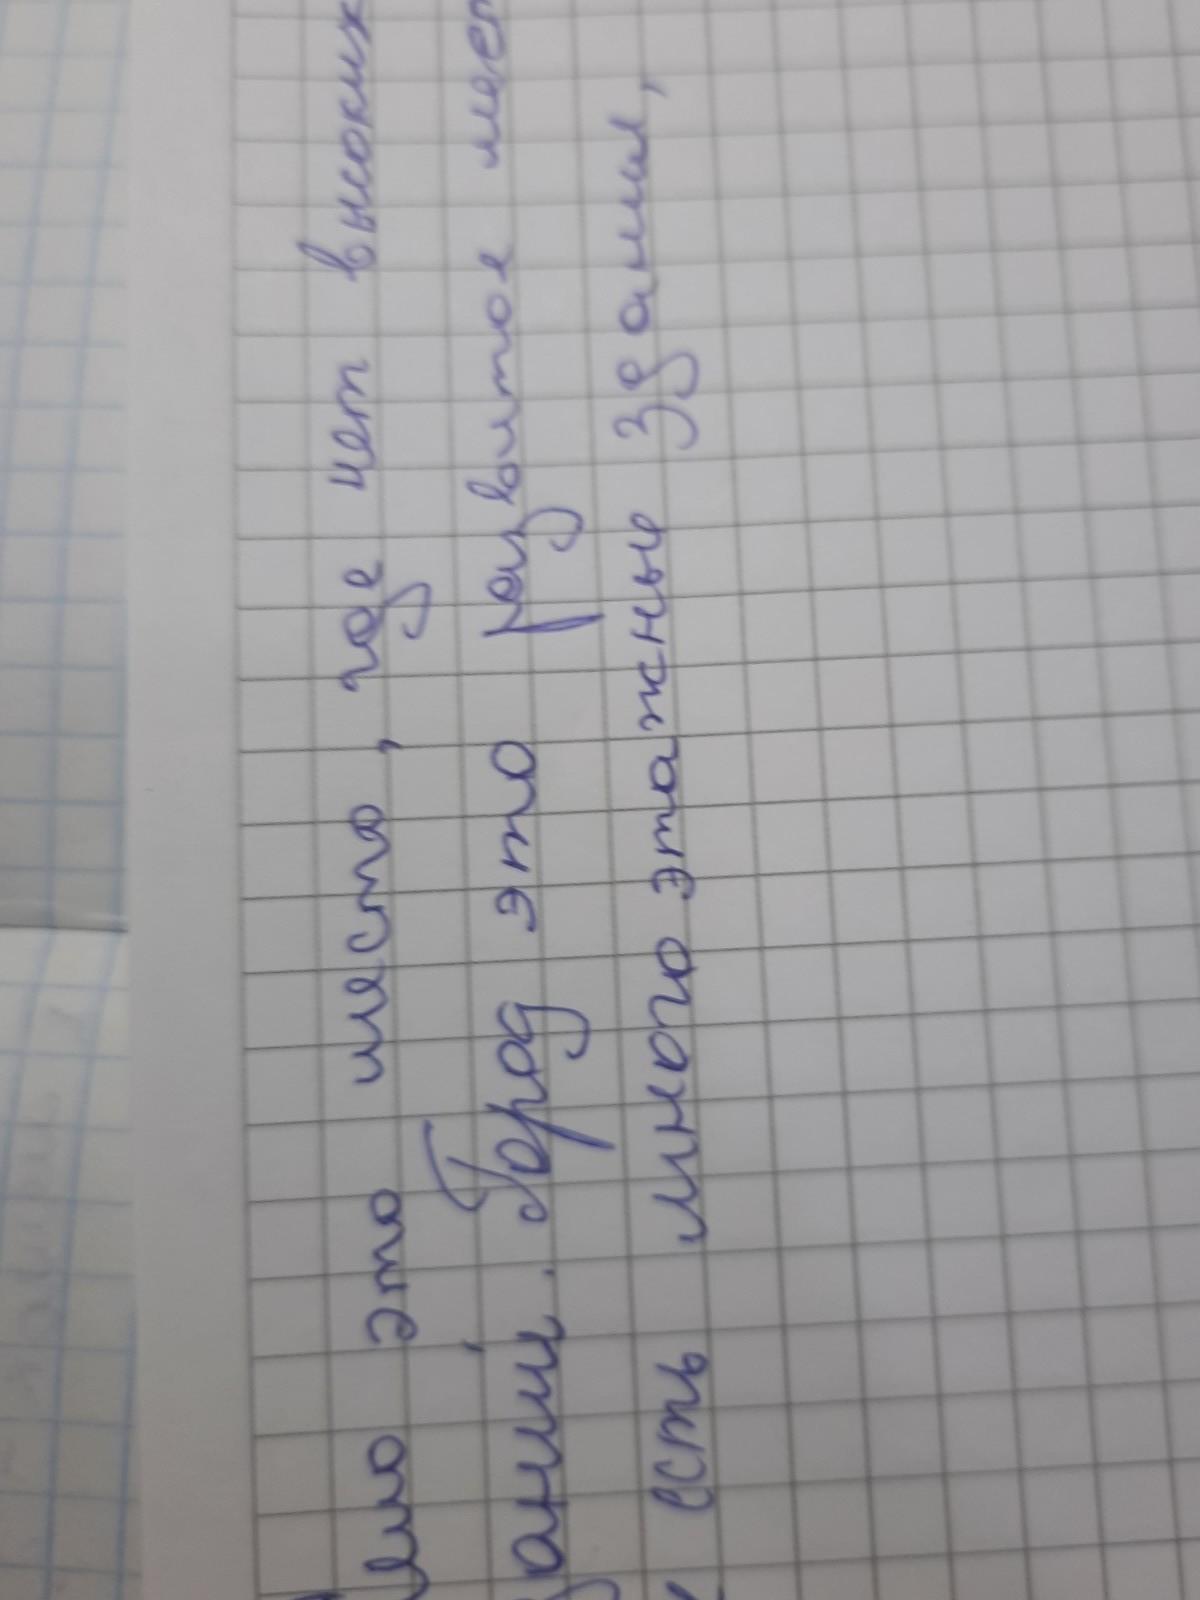 это место, где нет высоких
Город это развитое
есть много этажные здания,